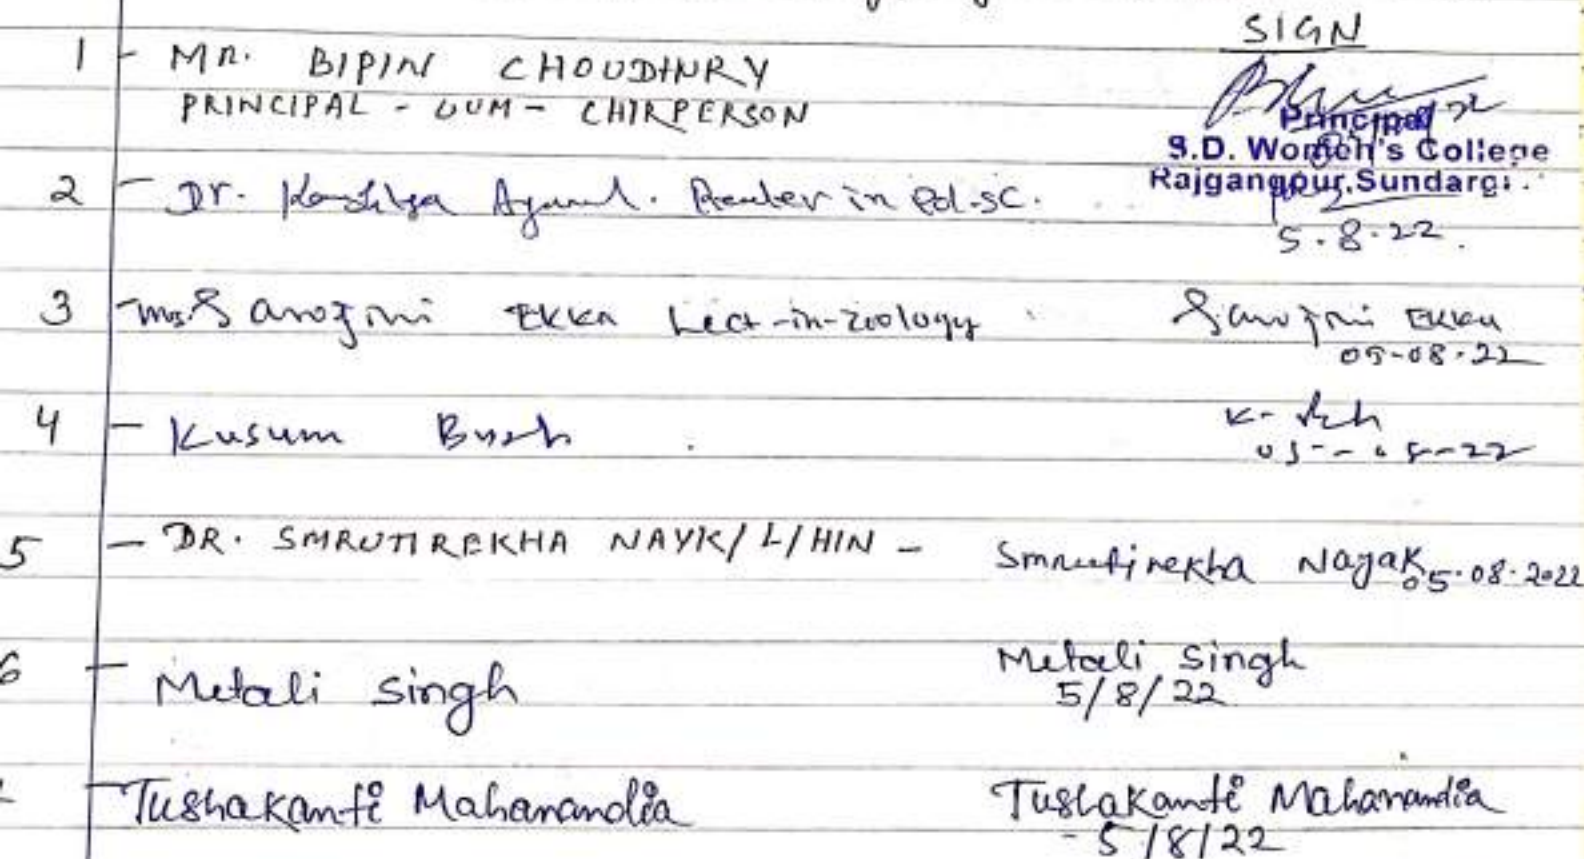 SIGN
1 - MR. BIPIN CHOUDHURY
PRINCIPAL - CUM - CHIRPERSON
Principal
S.D. Women's College
Rajgangpur, Sundargi.
2 - Dr. Agarwal. Reader in Pol.sc.
5.8.22.
3 - Ms. Sarojini EKKA Lect-in-Zoology
Sarojini EKKA
05-08-22
4 - Kusum
K.
5 - DR. SMRUTIREKHA NAYK/L/HIN -
Smrutirekha Nayak 05.08.2022
6 - Metali Singh
Metali Singh
5/8/22
- Tushakanti Mahanandia
Tushakanti Mahanandia
- 5/8/22